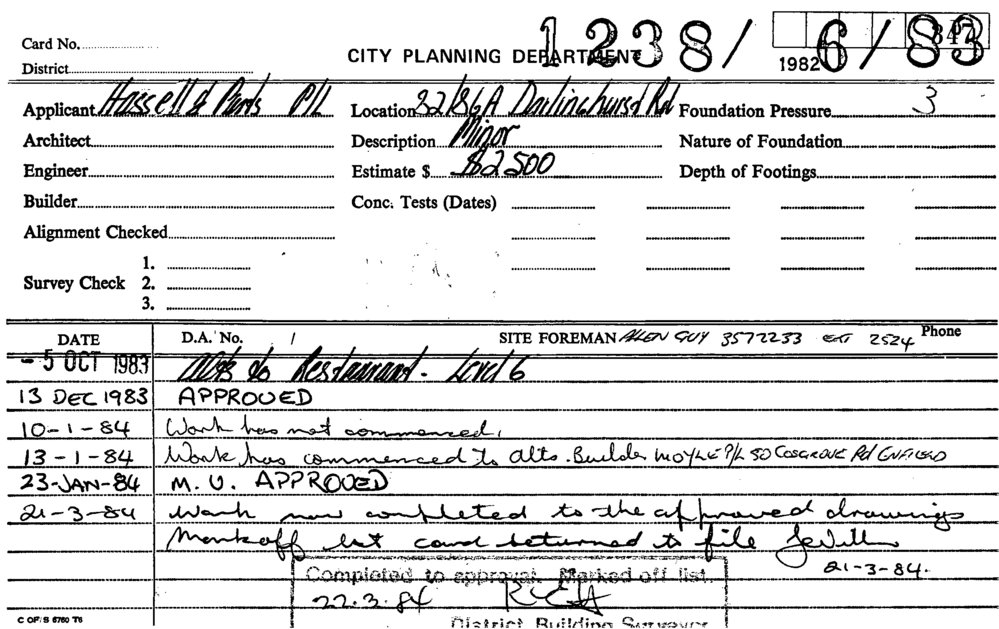 1238/6/83
Card No.
CITY PLANNING DEPARTMENT
1982
347
District
Applicant Hassell & Parts P/L Location 32/86A Darlinghurst Rd Foundation Pressure 3
Architect Description Minor Nature of Foundation
Engineer Estimate $ $2500 Depth of Footings
Builder Conc. Tests (Dates)
Alignment Checked
1.
Survey Check 2.
3.
DATE D.A. No. / SITE FOREMAN ALLEN GUY 3572233 EXT 2524 Phone
- 5 OCT 1983 Alts to Restaurant - Level 6
13 DEC 1983 APPROVED
10-1-84 Work has not commenced.
13-1-84 Work has commenced to alts. Builder MOYLE P/L 50 COSGROVE Rd ENFIELD
23-JAN-84 M. U. APPROVED
21-3-84 Work now completed to the approved drawings
Mark off list card returned to file
21-3-84.
Completed to approval. Marked off list.
22.3.84
District Building Surveyor
C OF/S 6760 T6